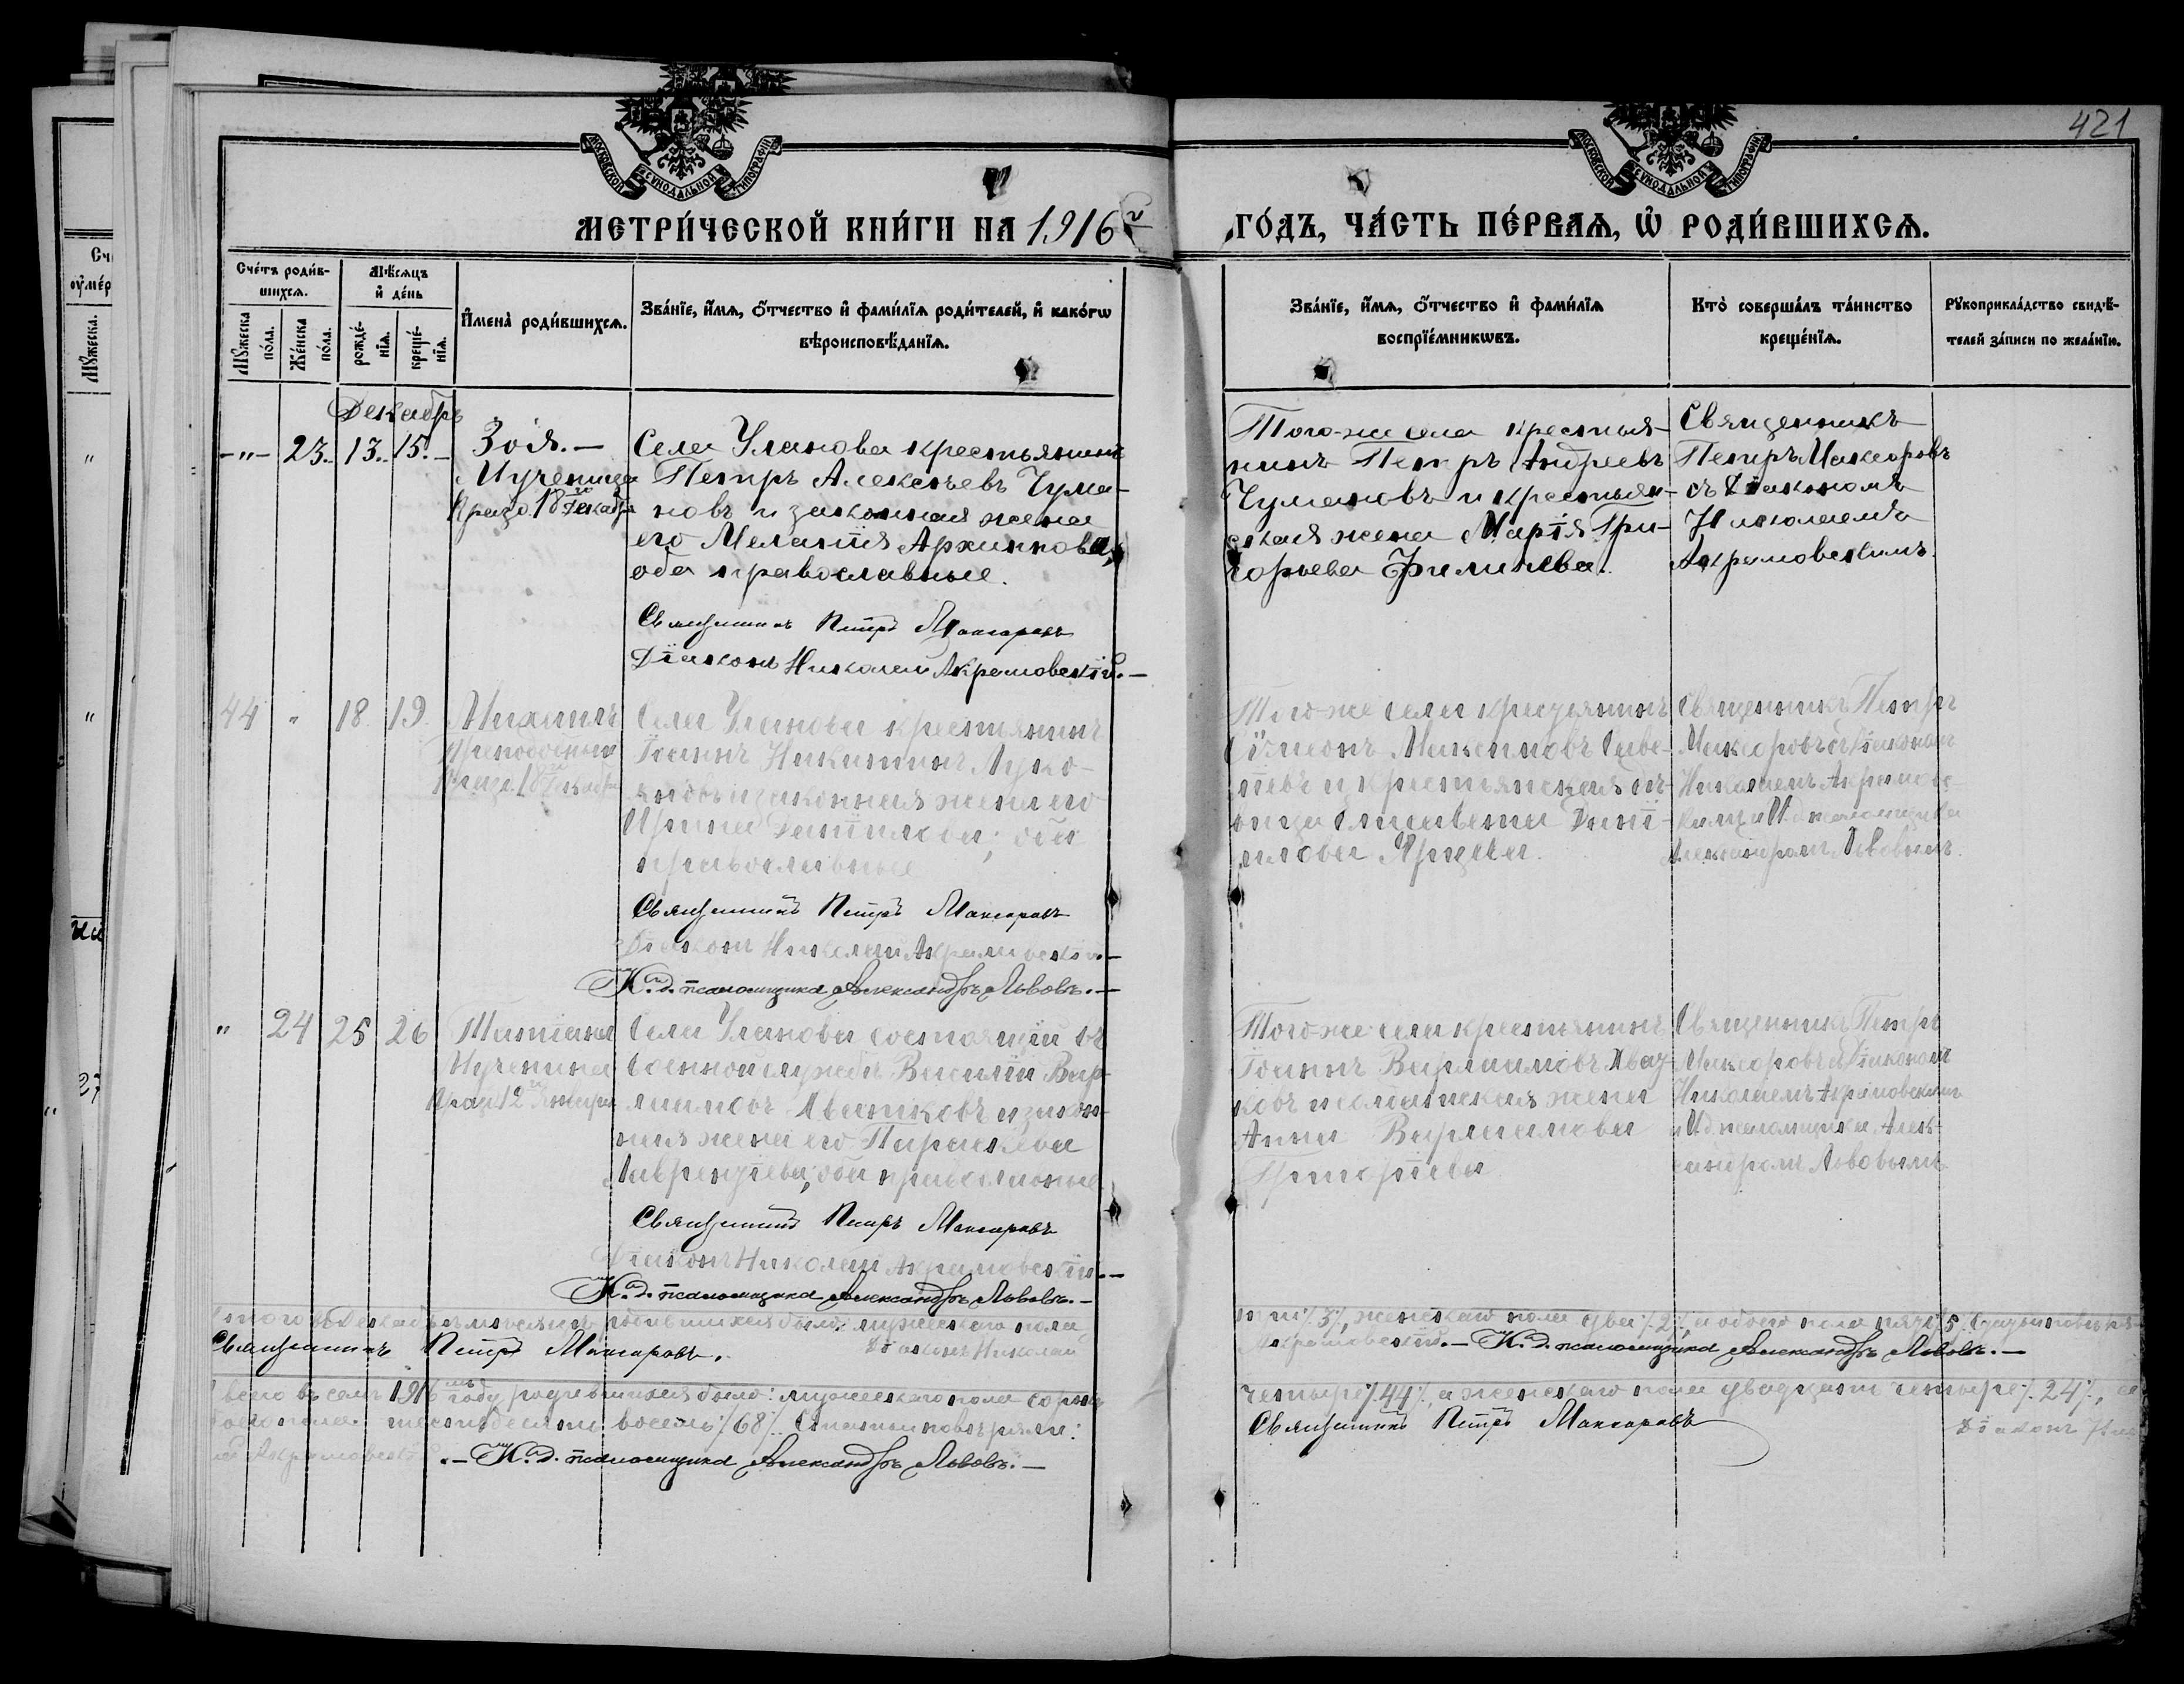 421
МОСКОВСКОЙ СѴНОДАЛЬНОЙ ТИПОГРАФІИ
МОСКОВСКОЙ СѴНОДАЛЬНОЙ ТИПОГРАФІИ
МЕТРИ́ЧЕСКОЙ КНИ́ГИ НА 1916 й
ГО́ДЪ, ЧА́СТЬ ПЕ́РВАѦ, Ѡ҆ РОДИ́ВШИХСѦ.
Сче́тъ роди́в-
шихсѧ.
Мѣ́сѧцъ
и҆ де́нь
Мꙋ́жеска
по́ла.
Же́нска
по́ла.
рожде́-
нїѧ.
креще́-
нїѧ.
И҆мена̀ роди́вшихсѧ.
Зва́нїе, и҆́мѧ, ѻ҆́тчество и҆ фами́лїѧ роди́телей, и҆ како́гѡ
вѣроисповѣ́данїѧ.
Зва́нїе, и҆́мѧ, ѻ҆́тчество и҆ фами́лїѧ
воспрїе́мникѡвъ.
Кто̀ соверша́лъ та́инство
креще́нїѧ.
Рꙋкоприкла́дство свидѣ́-
телей за́писи по жела́нїю.
Декабрь
-"- 23. 13. 15.-
Зоя.-
Мученица
Празд. 18го Декабр.
Села Уланова крестьянинъ
Петръ Алексѣевъ Чума-
новъ и законная жена
его Меланія Архипова,
оба православные.
Священникъ Петръ Макаровъ
Діаконъ Николай Акрамовскій.-
Того-же села крестья-
нинъ Петръ Андреевъ
Чумановъ и крестьян-
ская жена Марія Гри-
горьева Филичева.
Священникъ
Петръ Макаровъ
съ Діакономъ
Николаемъ
Акрамовскимъ.
44 " 18. 19.
Михаилъ
Преподобный
Празд. 18го Декабр
Села Уланова крестьянинъ
Іоаннъ Никитинъ Луко-
яновъ и законная жена его
Ирина Даніилова; оба
православные
Священникъ Петръ Макаровъ
Діаконъ Николай Акрамовскій.-
И. д. псаломщика Александръ Львовъ.-
Того-же села крестьянинъ
Сѵмеонъ Саве-
и крестьянская дѣ-
вица Елисавета Дані-
илова
Священникъ Петръ
Макаровъ съ Діаконом
Николаемъ Акрамовс-
кимъ и И. д. псаломщика
Александромъ Львовымъ.
" 24 25 26
Татіана
Мученица
Празд. 12го Января
Села Уланова состоящій въ
военной службѣ Василій Вар-
лаамовъ и закон-
ная жена его Параскева
Лаврентіева; оба православные
Священникъ Петръ Макаровъ
Діаконъ Николай Акрамовскій.-
И. д. псаломщика Александръ Львовъ.-
Того-же села крестьянинъ
Іоаннъ Варлаамовъ
и солдатская жена
Анна Варлаамова
Григоріева
Священникъ Петръ
Макаровъ съ Діакономъ
Николаемъ Акрамовскимъ
и И. д. псаломщика Алек-
сандромъ Львовымъ
Итого въ Декабрѣ мѣсяцѣ родившихся было: мужескаго пола
три /.3/., женскаго пола два /.2/., а обоего пола пять /.5/.
Священникъ Петръ Макаровъ. Діаконъ Николай
Акрамовскій.- И. д. псаломщика Александръ Львовъ.-
Всего въ семъ 1916мъ году родившихся было: мужескаго пола сорокъ
четыре /.44/., а женскаго пола двадцать четыре /.24/., а
обоего пола шестьдесятъ восемь /.68/.
Священникъ Петръ Макаровъ Діаконъ Ник
Акрамовскій.- И. д. псаломщика Александръ Львовъ.-